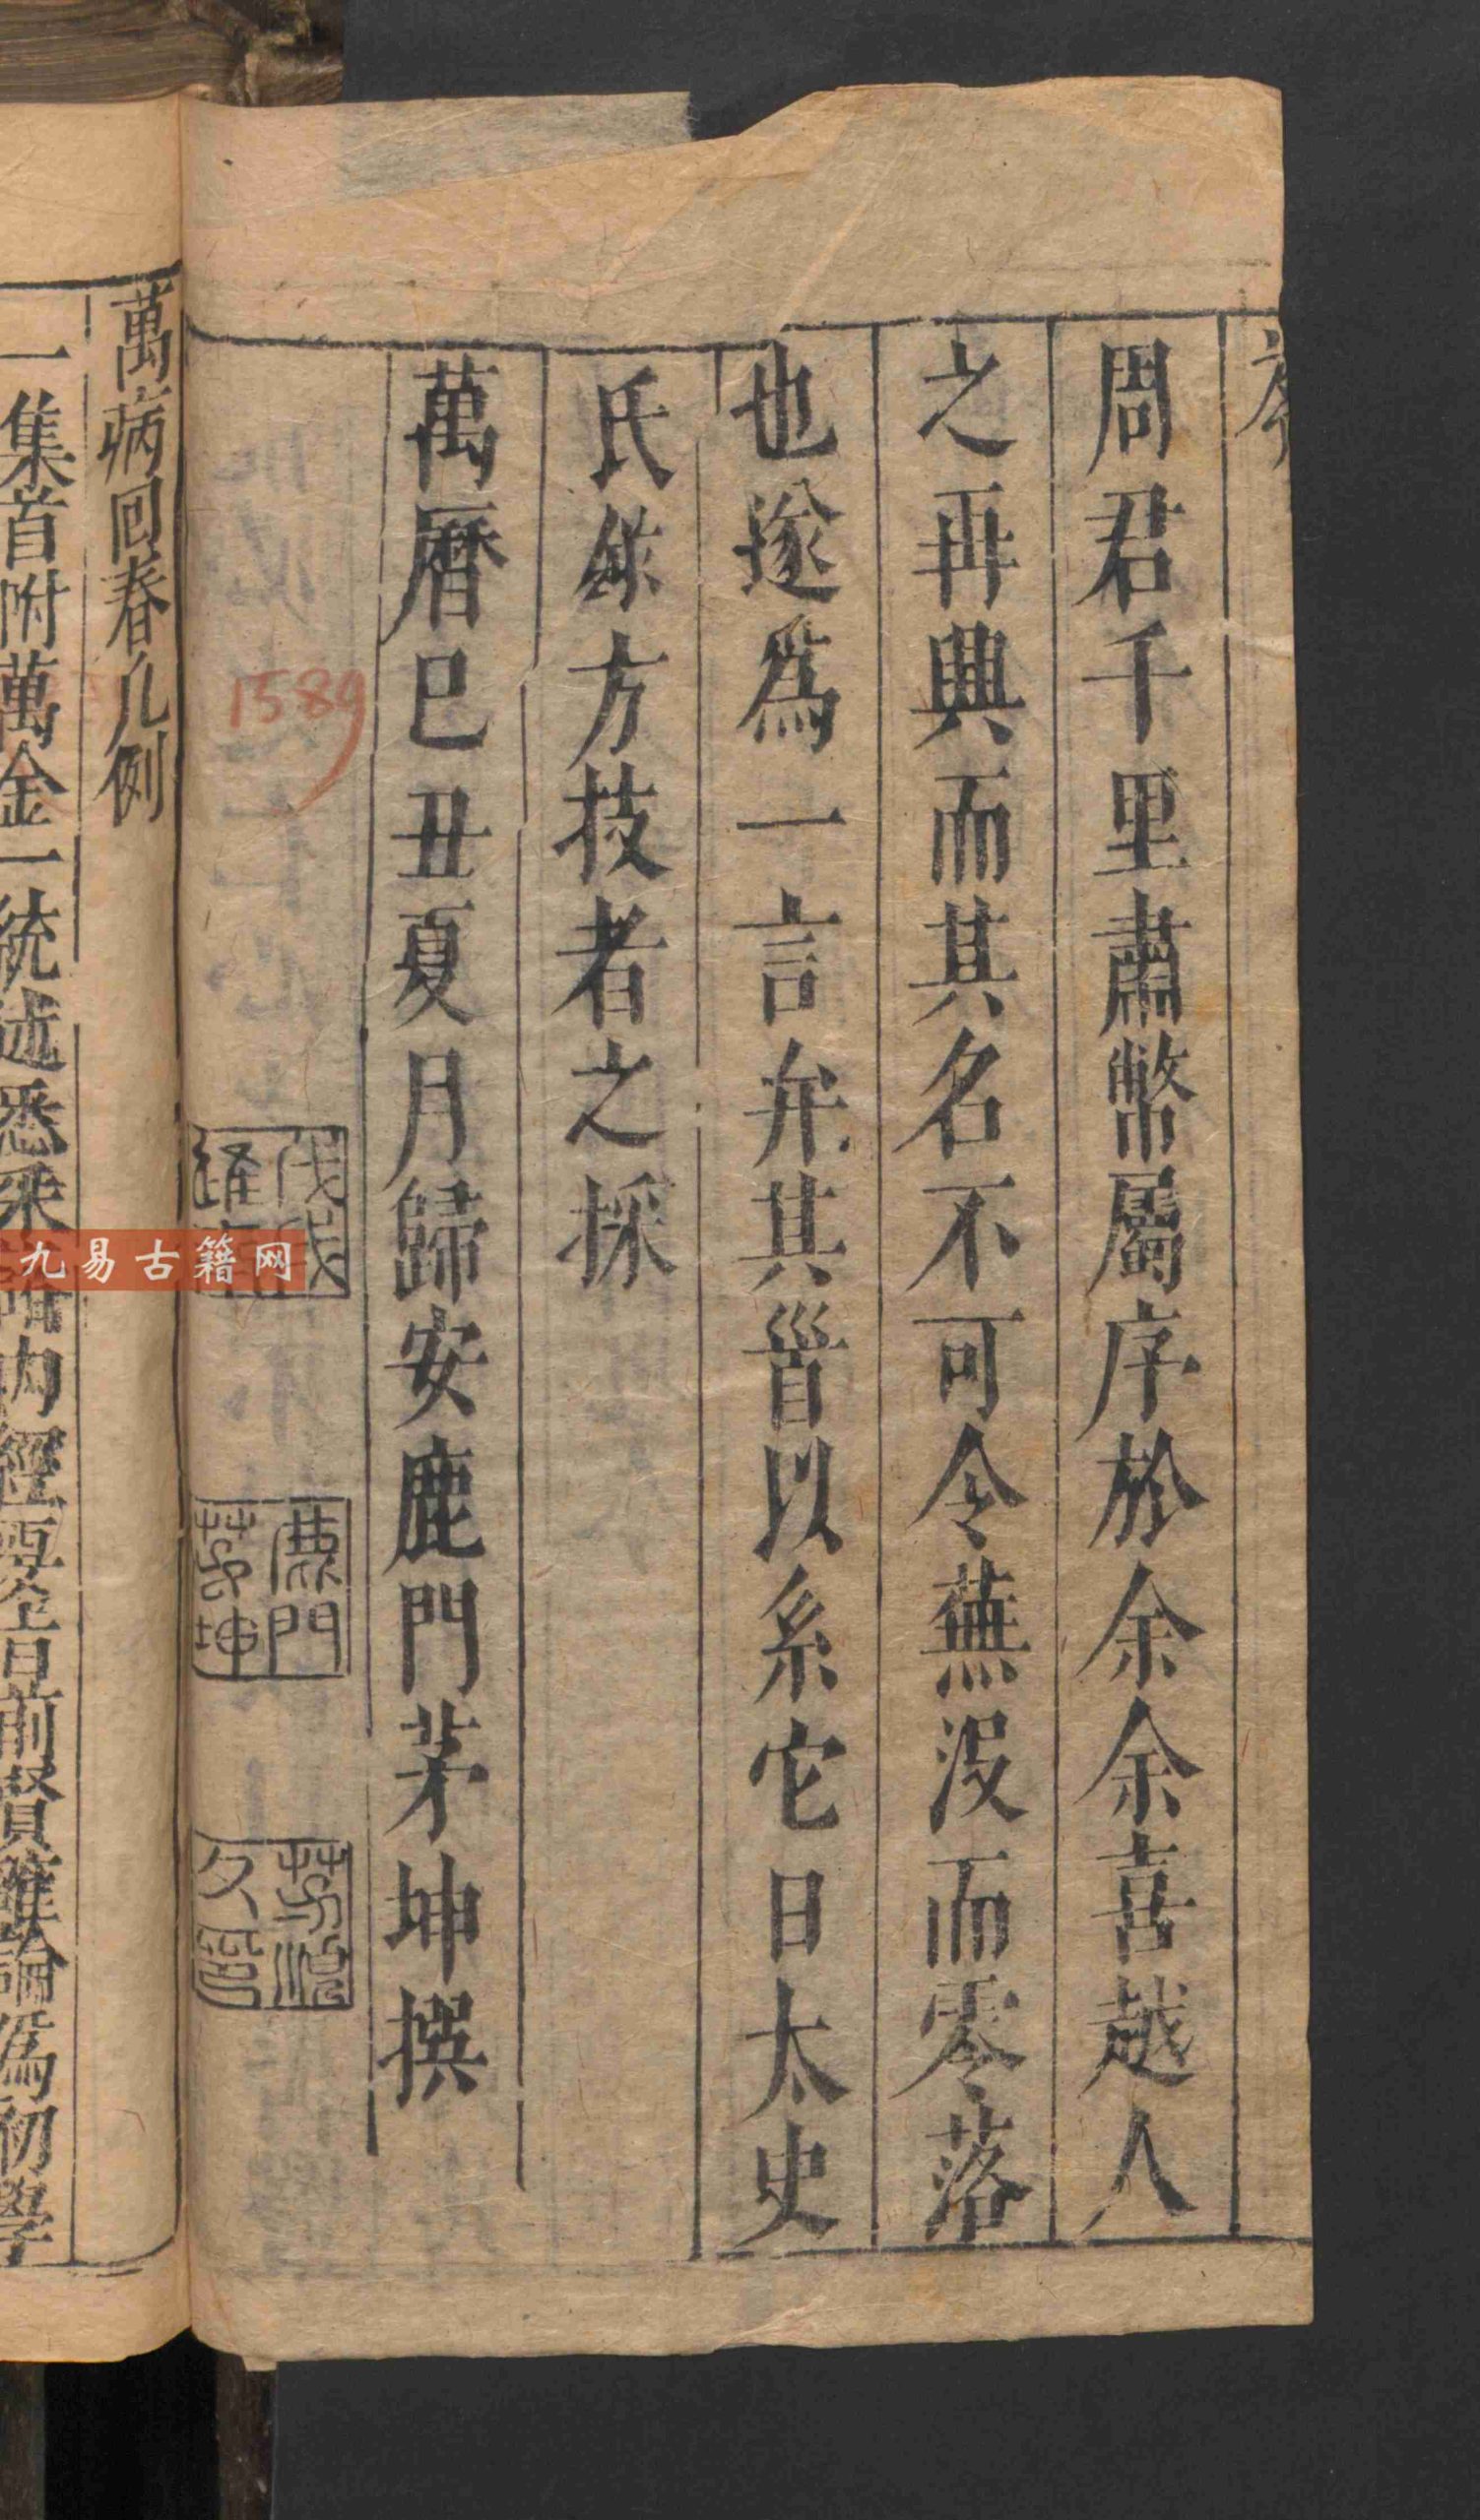 周君千里肅幣屬序於余余喜越人
之再興而其名不可令蕪沒而零落
也遂爲一言弁其首以系它日太史
氏錄方技者之採
萬曆已丑夏月歸安鹿門茅坤撰
1589
鹿門
茅坤
萬病回春凡例
一集首附萬金一統述悉采
內經要全旨前賢確論爲初學
九易古籍网